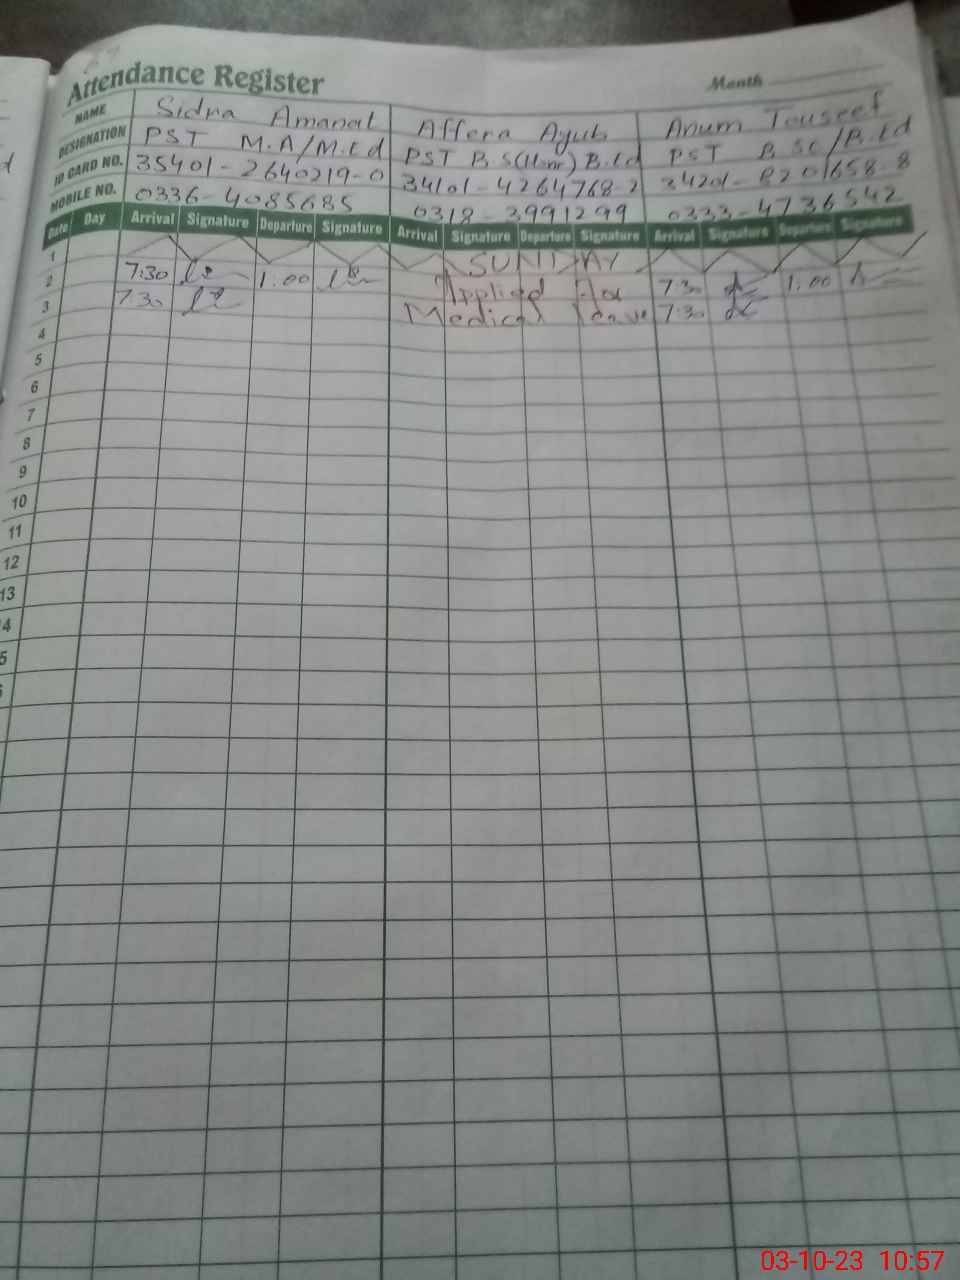 Attendance Register Month
NAME Sidra Amanat Affera Ayub Anum Touseef
DESIGNATION PST M.A/M.Ed PST B.S(Honr) B.Ed PST B.Sc/B.Ed
ID CARD NO. 35401-2640219-0 34101-4264768-2 34201-8201658-8
MOBILE NO. 0336-4085685 0318-3991299 0333-4736542
Date Day Arrival Signature Departure Signature Arrival Signature Departure Signature Arrival Signature Departure Signature
1 SUNDAY
2 7:30 1:00 Applied For 7:30 1:00
3 7:30 Medical leave 7:30
4
5
6
7
8
9
10
11
12
13
4
5
03-10-23 10:57